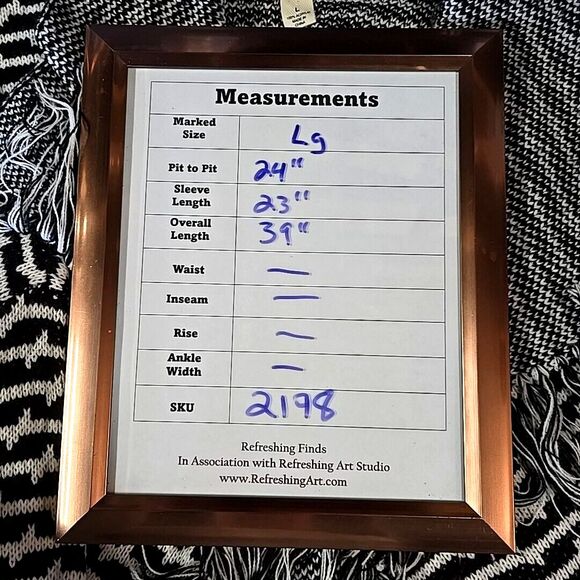 L
Measurements
Marked Size Lg
Pit to Pit 24"
Sleeve Length 23"
Overall Length 39"
Waist —
Inseam —
Rise —
Ankle Width —
SKU 2198
Refreshing Finds
In Association with Refreshing Art Studio
www.RefreshingArt.com